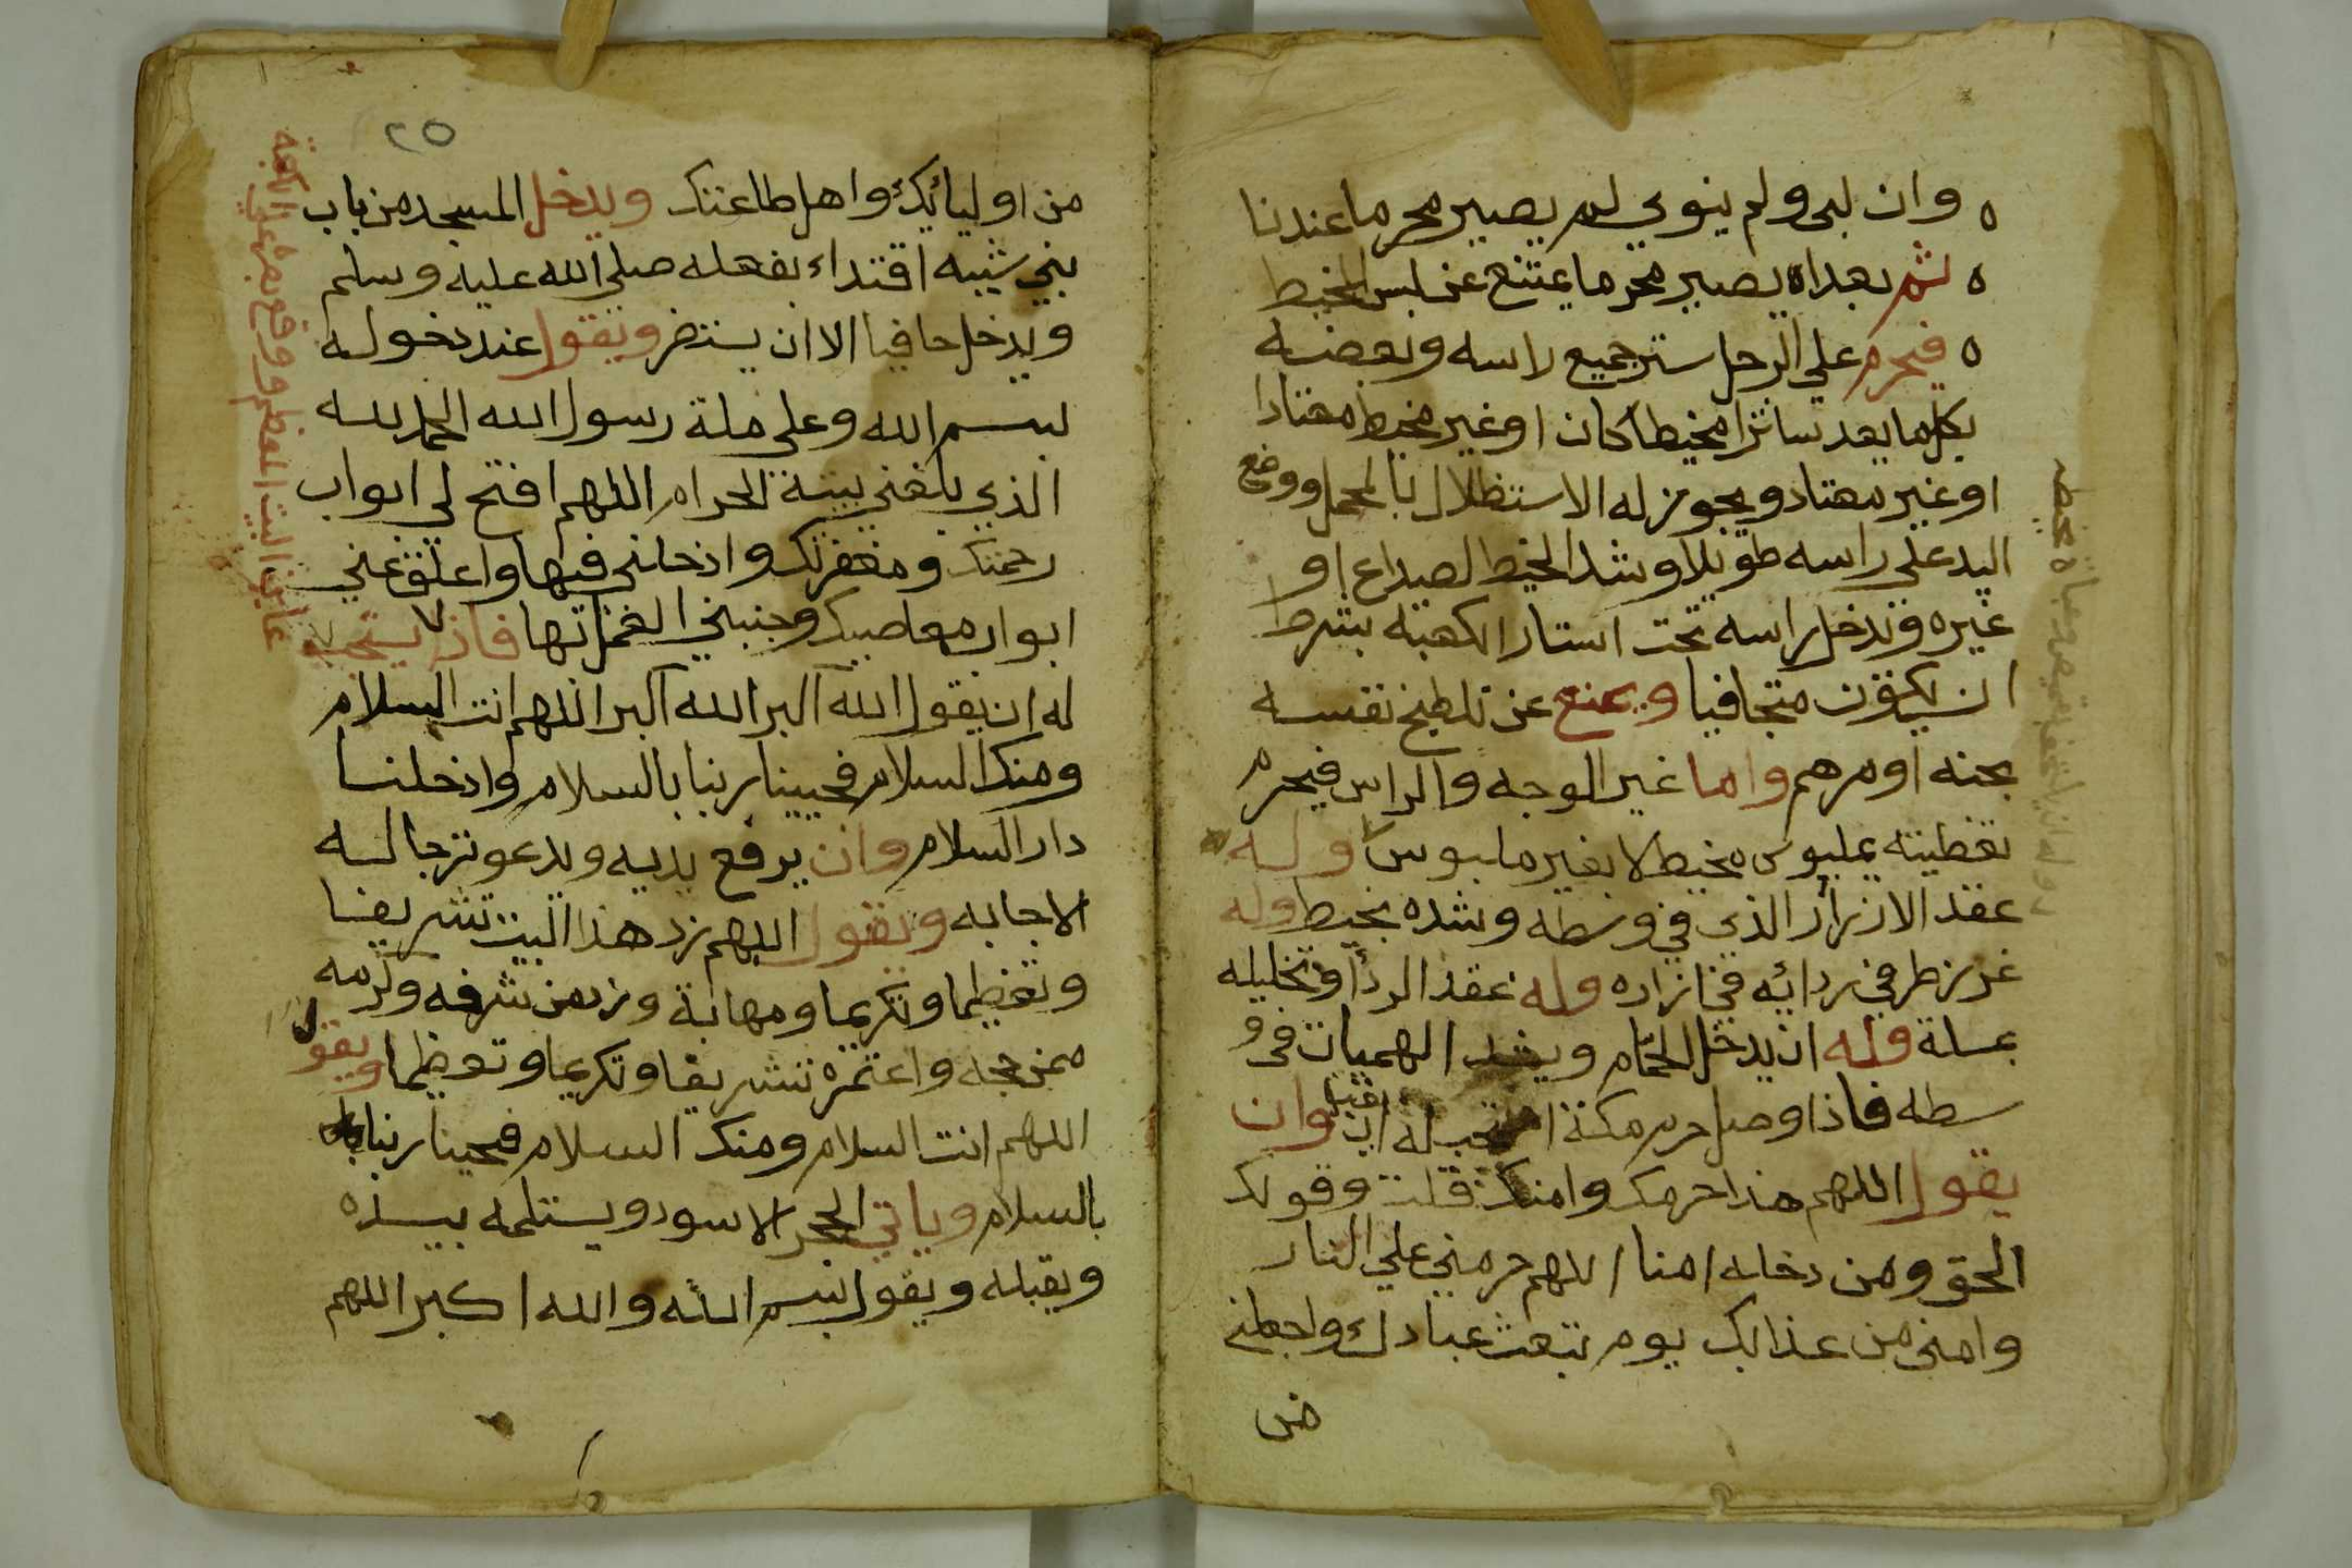 وان لبى ولم ينوي لم يصير محرما عندنا
ثم بعد ان يصير محرما يمتنع عن لبس المخيط
فيحرم علي الرجل ستر جميع راسه وبعضه
بكل ما يعد ساترا مخيطا كان او غير مخيط معتادا
او غير معتاد ويجوز له الاستظلال بالمحمل ووضع
اليد على راسه طويلا وشد الخيط لصداع او
غيره وتدخل راسه تحت استار الكعبة بشرط
ان يكون متجافيا ويمنع عن تلطيخ نفسه
بحنه او مرهم واما غير الوجه والراس فيحرم
تغطيته بملبوس مخيط لا بغير ملبوس وله
عقد الازرار الذي في وسطه وشده بخيط وله
غرز طرفي ردائه في ازاره وله عقد الردأ وتخليله
بمسلة وله ان يدخل الحمام ويشد الهميان في و
سطه فاذا وصل حرم مكة استحب له ان وان
يقول اللهم هذا حرمك وامنك قلت وقولك
الحق ومن دخله امنا اللهم حرمني علي النار
وامني من عذابك يوم تبعث عبادك واجعلني
من
٢٥
من اوليائك واهل طاعتك ويدخل المسجد من باب
بني شيبه اقتداء بفعله صلى الله عليه وسلم
ويدخل حافيا الا ان يستضر ويقول عند دخوله
بسم الله وعلى ملة رسول الله الحمد لله
الذي بلغني بيته الحرام اللهم افتح لي ابواب
رحمتك ومغفرتك وادخلني فيها واغلق عني
ابواب معاصيك وجنبني الغمراتها فاذا يستحب
له ان يقول الله اكبر الله اكبر اللهم انت السلام
ومنك السلام فحيينا ربنا بالسلام وادخلنا
دار السلام وان يرفع يديه ويدعو ترجا له
الاجابه ويقول اللهم زد هذا البيت تشريفا
وتعظيما وتكريما ومهابة وزد من شرفه وكرمه
ممن حجه واعتمره تشريفا وتكريما وتعظيما ويقول
اللهم انت السلام ومنك السلام فحينا ربنا
بالسلام وياتي الحجر الاسود ويستلمه بيده
ويقبله ويقول بسم الله والله اكبر اللهم
عاين البيت المعظم ووقع بصره علي الكعبة